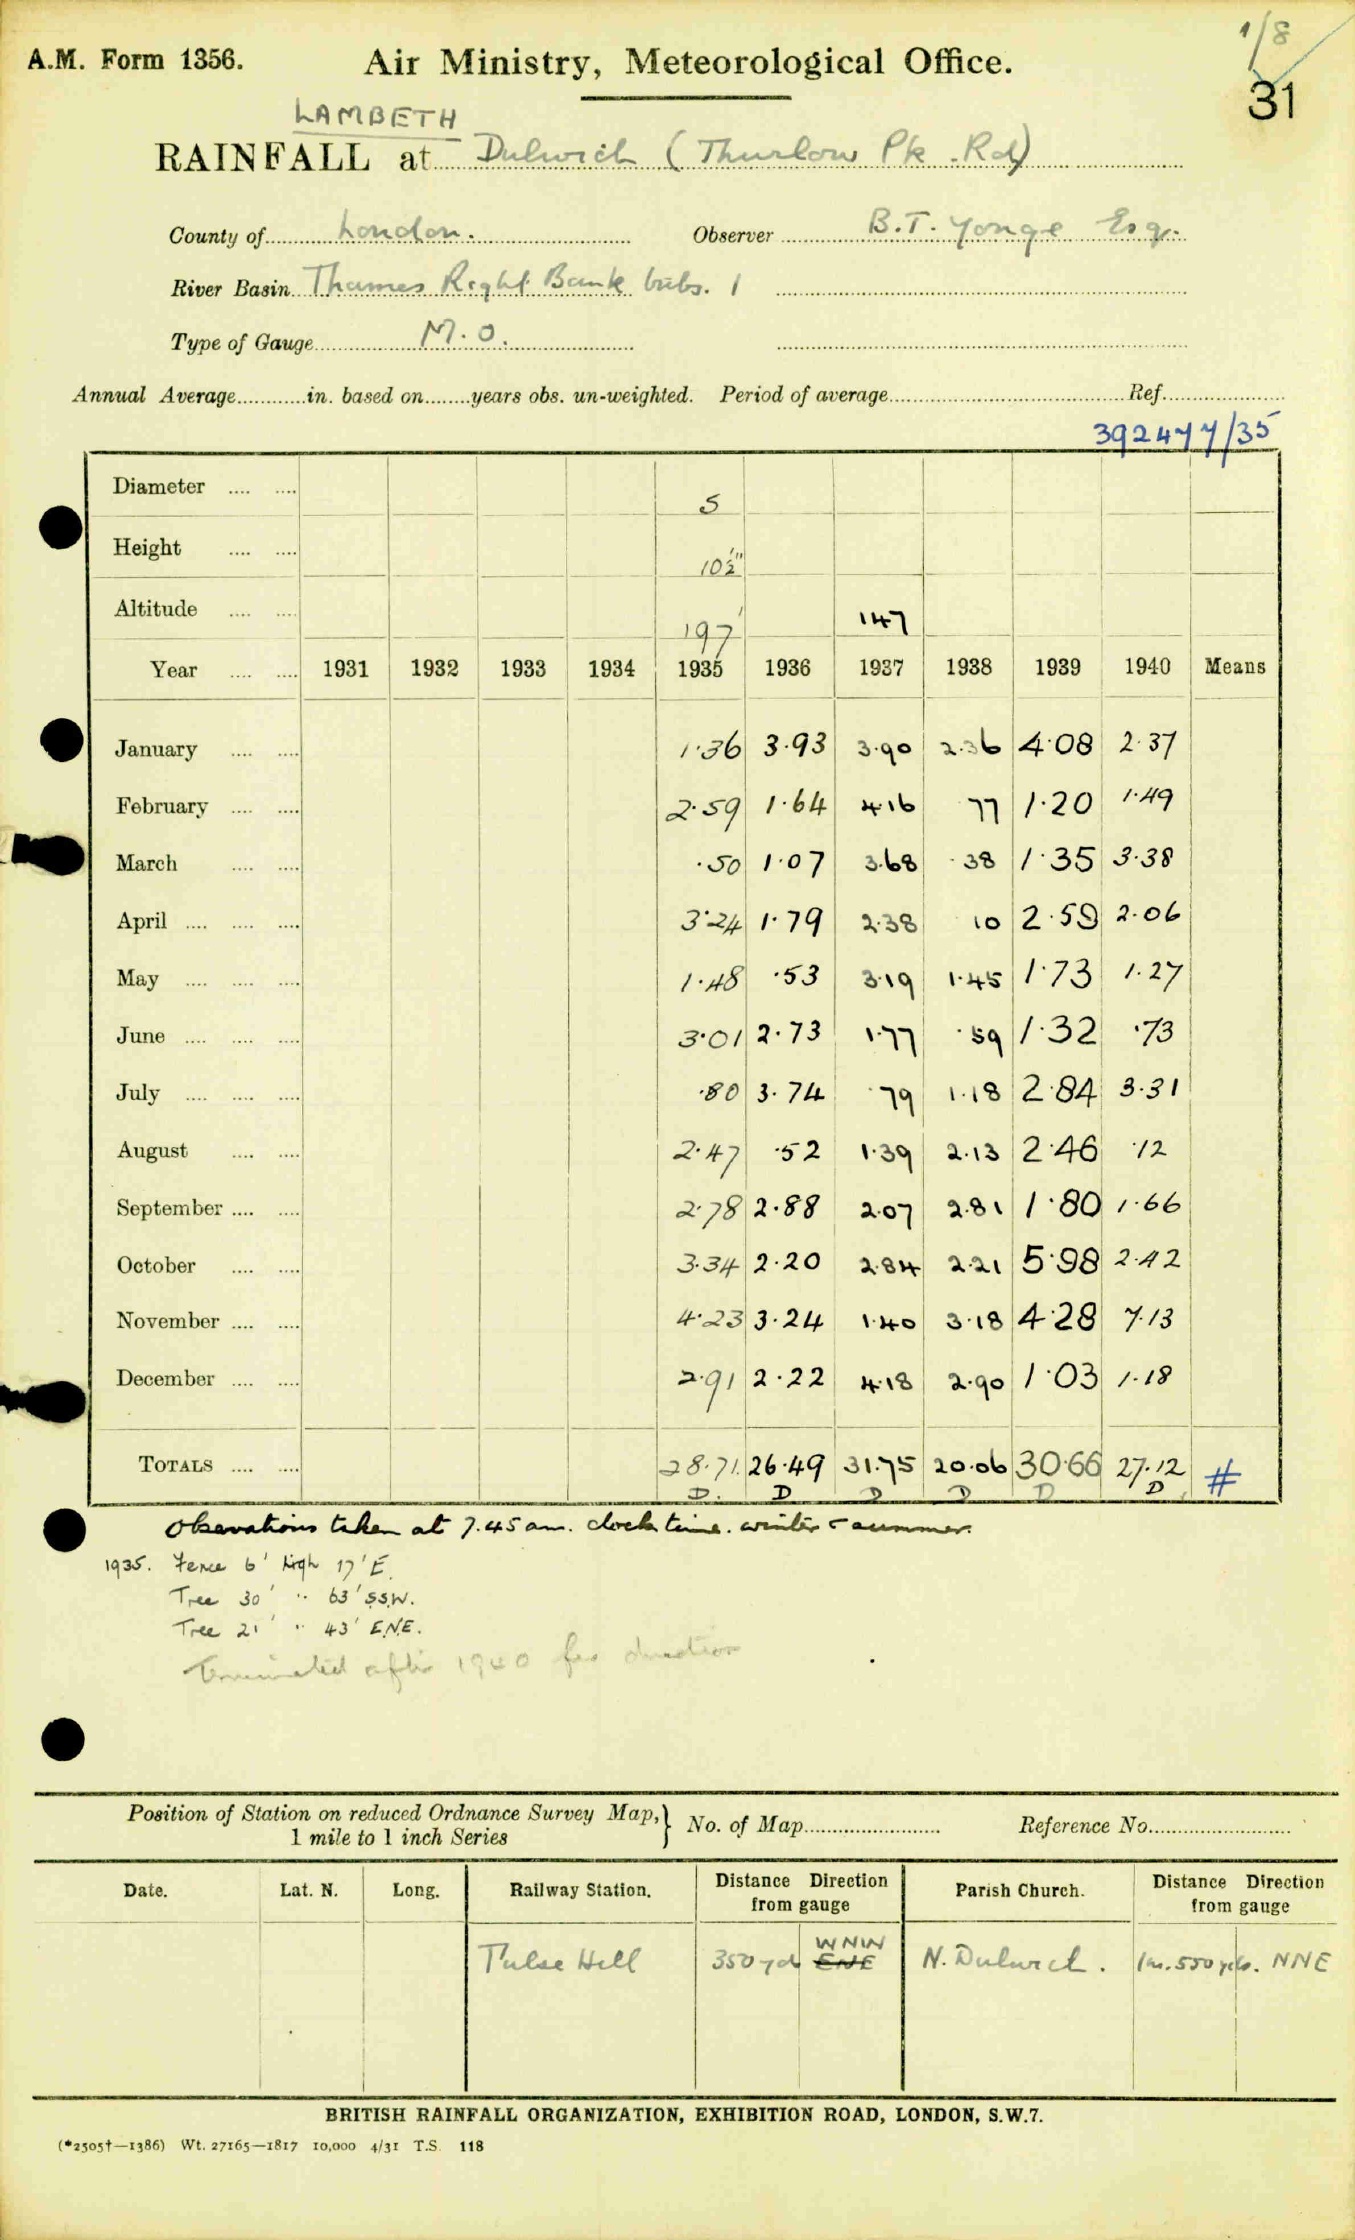 1/8
A.M. Form 1356.
Air Ministry, Meteorological Office.
31
LAMBETH
RAINFALL at Dulwich (Thurlow Pk. Rd)
County of London. Observer B.T. Yonge Esq.
River Basin Thames Right Bank tribs. 1
Type of Gauge M.O.
Annual Average in. based on years obs. un-weighted. Period of average Ref.
392477/35
Diameter 5
Height 10½"
Altitude 197' 147
Year 1931 1932 1933 1934 1935 1936 1937 1938 1939 1940 Means
January 1·36 3·93 3·90 2·36 4·08 2·37
February 2·59 1·64 4·16 77 1·20 1·49
March ·50 1·07 3·68 ·38 1·35 3·38
April 3·24 1·79 2·38 10 2·59 2·06
May 1·48 ·53 3·19 1·45 1·73 1·27
June 3·01 2·73 1·77 ·59 1·32 ·73
July ·80 3·74 ·79 1·18 2·84 3·31
August 2·47 ·52 1·39 2·13 2·46 ·12
September 2·78 2·88 2·07 2·81 1·80 1·66
October 3·34 2·20 2·84 2·21 5·98 2·42
November 4·23 3·24 1·40 3·18 4·28 7·13
December 2·91 2·22 4·18 2·90 1·03 1·18
TOTALS 28·71 26·49 31·75 20·06 30·66 27·12 #
D. D D D D D
Observations taken at 7.45 am. clock time. winter & summer.
1935. Fence 6' high 17' E.
Tree 30' " 63' S.S.W.
Tree 21' " 43' E.N.E.
Terminated after 1940 for duration
Position of Station on reduced Ordnance Survey Map, 1 mile to 1 inch Series } No. of Map Reference No.
Date. Lat. N. Long. Railway Station. Distance Direction from gauge Parish Church. Distance Direction from gauge
WNW
Tulse Hill 350 yds ENE N. Dulwich. 1m. 550 yds. NNE
BRITISH RAINFALL ORGANIZATION, EXHIBITION ROAD, LONDON, S.W.7.
(*2505†—1386) Wt. 27165—1817 10,000 4/31 T.S. 118